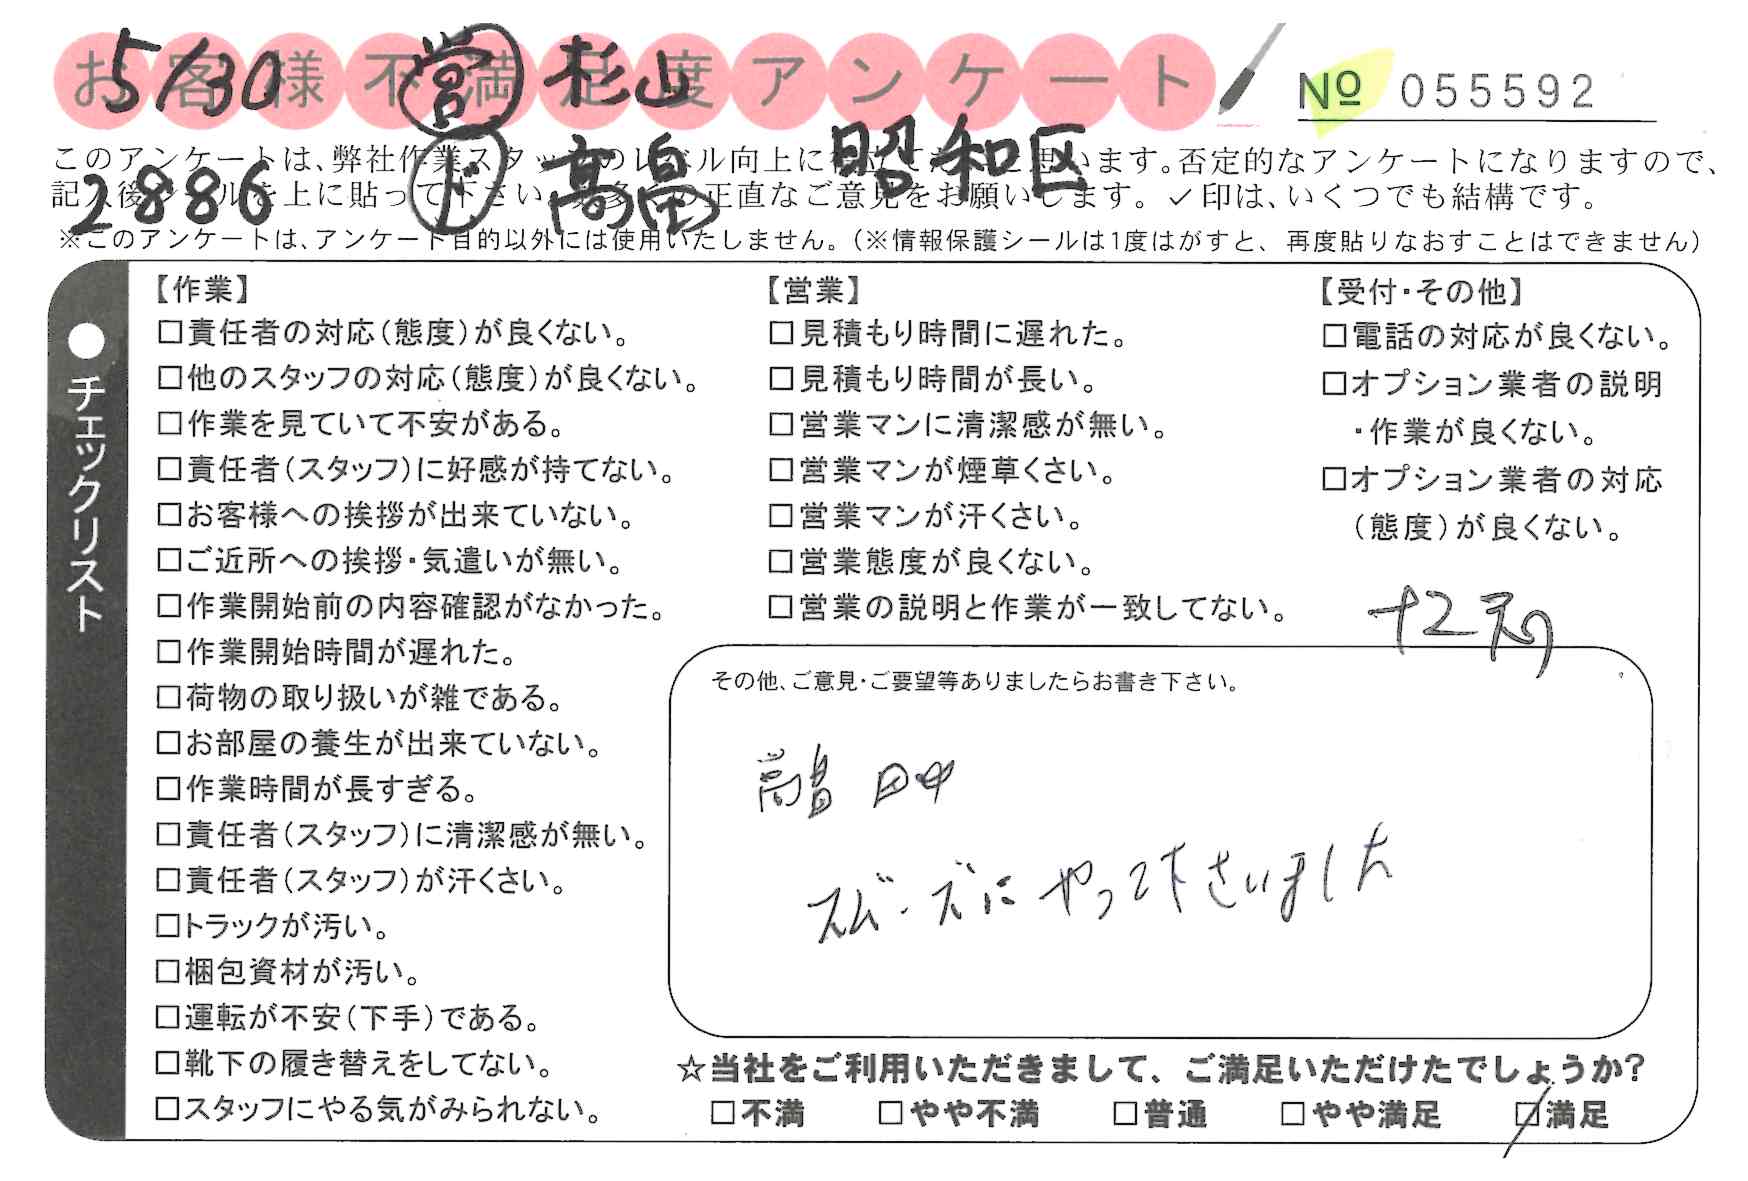 お客様不満足度アンケート
5/30 営 杉山
№ 055592
2886 ド 高畠 昭和区
このアンケートは、弊社作業スタッフのレベル向上に役立てたいと思います。否定的なアンケートになりますので、
記入後シールを上に貼って下さい。数多くの正直なご意見をお願いします。✓印は、いくつでも結構です。
※このアンケートは、アンケート目的以外には使用いたしません。(※情報保護シールは1度はがすと、再度貼りなおすことはできません)
●チェックリスト
【作業】
□責任者の対応(態度)が良くない。
□他のスタッフの対応(態度)が良くない。
□作業を見ていて不安がある。
□責任者(スタッフ)に好感が持てない。
□お客様への挨拶が出来ていない。
□ご近所への挨拶・気遣いが無い。
□作業開始前の内容確認がなかった。
□作業開始時間が遅れた。
□荷物の取り扱いが雑である。
□お部屋の養生が出来ていない。
□作業時間が長すぎる。
□責任者(スタッフ)に清潔感が無い。
□責任者(スタッフ)が汗くさい。
□トラックが汚い。
□梱包資材が汚い。
□運転が不安(下手)である。
□靴下の履き替えをしてない。
□スタッフにやる気がみられない。
【営業】
□見積もり時間に遅れた。
□見積もり時間が長い。
□営業マンに清潔感が無い。
□営業マンが煙草くさい。
□営業マンが汗くさい。
□営業態度が良くない。
□営業の説明と作業が一致してない。
【受付・その他】
□電話の対応が良くない。
□オプション業者の説明
・作業が良くない。
□オプション業者の対応
(態度)が良くない。
その他、ご意見・ご要望等ありましたらお書き下さい。
高畠 田中
スムーズにやって下さいました
☆当社をご利用いただきまして、ご満足いただけたでしょうか?
□不満 □やや不満 □普通 □やや満足 ☑満足